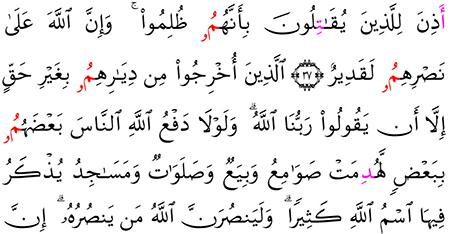 أَذِنَ لِلَّذِينَ يُقَٰتِلُونَ بِأَنَّهُمُۥ ظُلِمُوا۟ ۚ وَإِنَّ ٱللَّهَ عَلَىٰ
نَصْرِهِمُۥ لَقَدِيرٌ ﴿٣٧﴾ ٱلَّذِينَ أُخْرِجُوا۟ مِن دِيَٰرِهِمُۥ بِغَيْرِ حَقٍّ
إِلَّا أَن يَقُولُوا۟ رَبُّنَا ٱللَّهُ ۗ وَلَوْلَا دَفْعُ ٱللَّهِ ٱلنَّاسَ بَعْضَهُمُۥ
بِبَعْضٍ لَّهُدِمَتْ صَوَٰمِعُ وَبِيَعٌ وَصَلَوَٰتٌ وَمَسَٰجِدُ يُذْكَرُ
فِيهَا ٱسْمُ ٱللَّهِ كَثِيرًا ۗ وَلَيَنصُرَنَّ ٱللَّهُ مَن يَنصُرُهُۥ ۗ إِنَّ